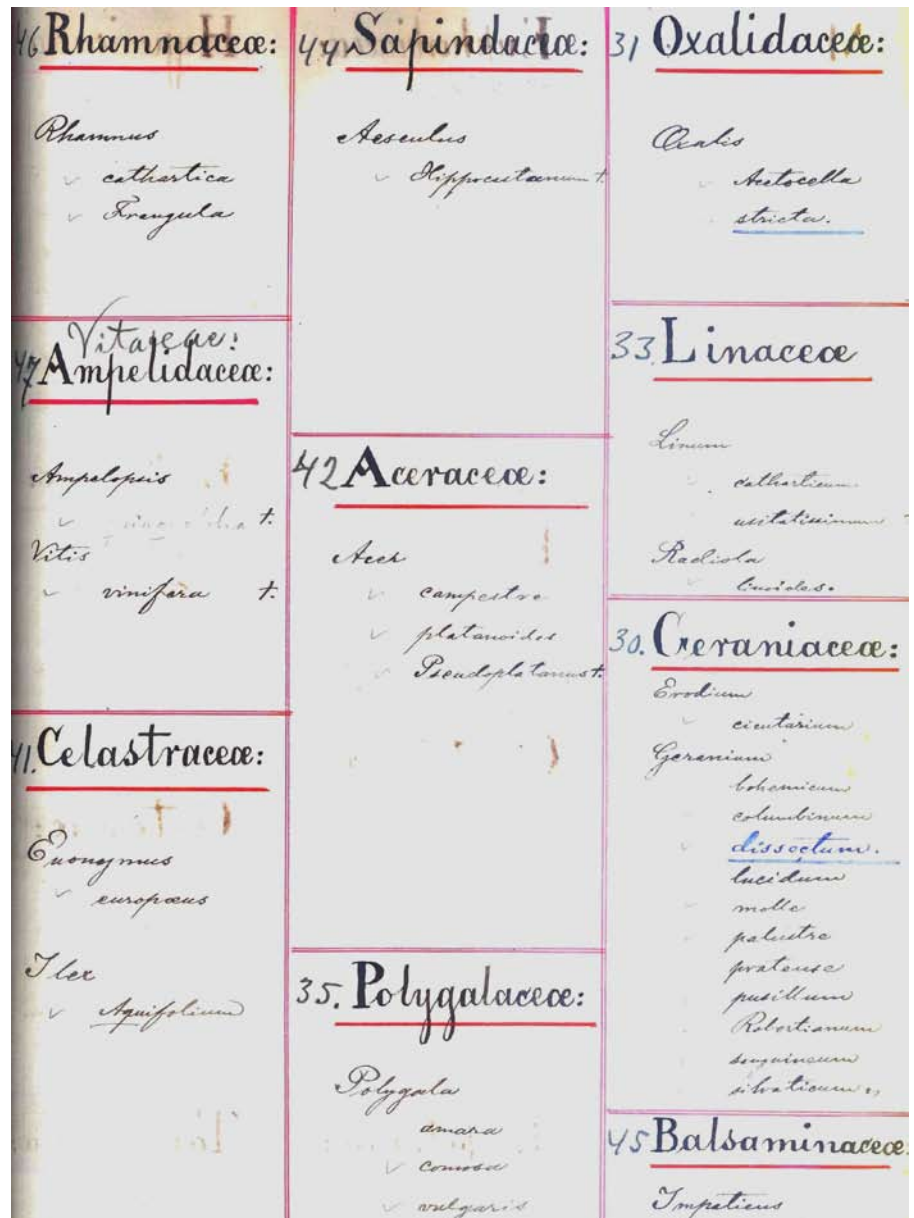 46 Rhamnaceæ:
Rhamnus
cathartica
Frangula
Vitaceae:
47 Ampelidaceæ:
Ampelopsis
t.
Vitis
vinifera t.
41. Celastraceæ:
Euonymus
europæus
Ilex
Aquifolium
44 Sapindaceæ:
Aesculus
Hippocastanum t.
42 Aceraceæ:
Acer
campestre
platanoides
Pseudoplatanus t.
35. Polygalaceæ:
Polygala
amara
comosa
vulgaris
31 Oxalidaceæ:
Oxalis
Acetocella
stricta.
33. Linaceæ
Linum
catharticum
usitatissimum
Radiola
linoides.
30. Geraniaceæ:
Erodium
cicutarium
Geranium
bohemicum
columbinum
dissectum.
lucidum
molle
palustre
pratense
pusillum
Robertianum
sanguineum
silvaticum
45 Balsaminaceæ:
Impatiens